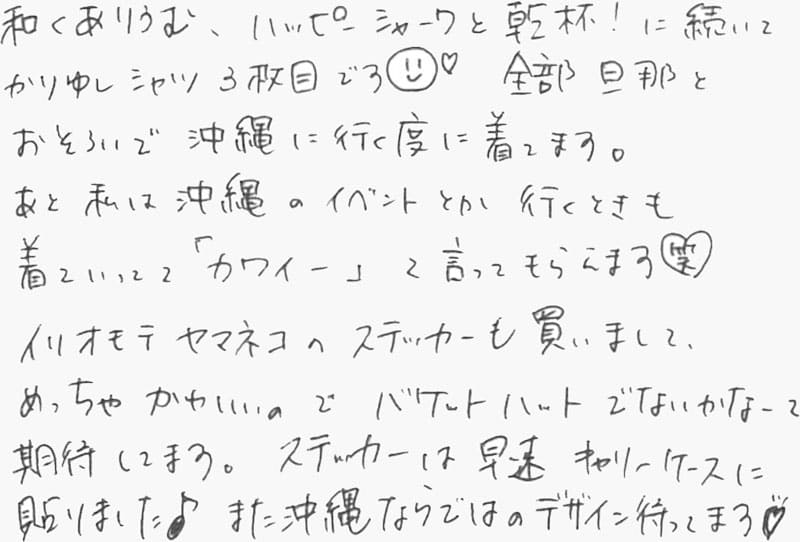 和くありうむ、ハッピーシャークと乾杯！に続いて
かりゆしシャツ3枚目です♡ 全部旦那と
おそろいで沖縄に行く度に着てます。
あと私は沖縄のイベントとか行くときも
着ていってて「カワイー」て言ってもらえます笑
イリオモテヤマネコのステッカーも買いまして、
めっちゃかわいいのでバケットハットでないかなーて
期待してます。ステッカーは早速キャリーケースに
貼りました♪また沖縄ならではのデザイン待ってます♡